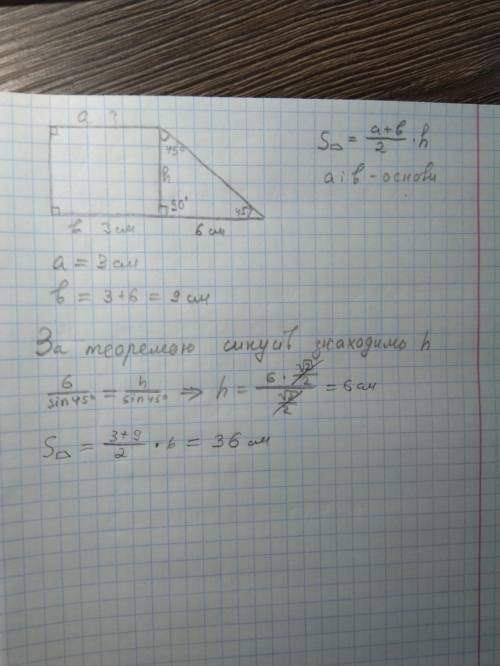 a ?
45°
h
90°
45°
b 3 см 6 см
S = a+b/2 · h
a i b - основи
a = 3 см
b = 3+6 = 9 см
За теоремою синусів знаходимо h
6/sin45° = h/sin45° => h = 6 · √2/2 / √2/2 = 6 см
S = 3+9/2 · 6 = 36 см